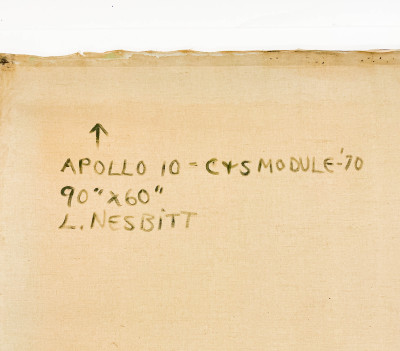 ↑
APOLLO 10 - C+S MODULE-'70
90" x 60"
L. NESBITT